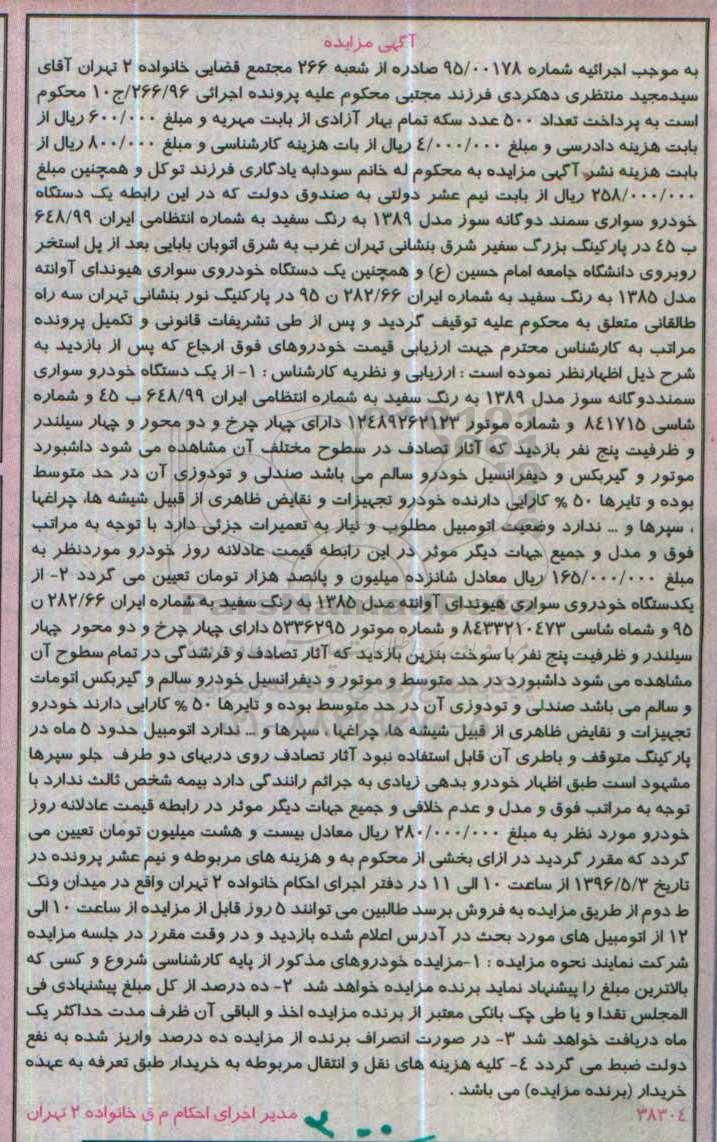 آگهی مزایده
به موجب اجرائیه شماره ۹۵/۰۰۱۷۸ صادره از شعبه ۲۶۶ مجتمع قضایی خانواده ۲ تهران آقای
سیدمجید منتظری دهکردی فرزند مجتبی محکوم علیه پرونده اجرائی ۲۶۶/۹۶/ج۱۰ محکوم
است به پرداخت تعداد ۵۰۰ عدد سکه تمام بهار آزادی از بابت مهریه و مبلغ ۶۰۰/۰۰۰ ریال از
بابت هزینه دادرسی و مبلغ ۴/۰۰۰/۰۰۰ ریال از بات هزینه کارشناسی و مبلغ ۸۰۰/۰۰۰ ریال از
بابت هزینه نشر آگهی مزایده به محکوم له خانم سودابه یادگاری فرزند توکل و همچنین مبلغ
۲۵۸/۰۰۰/۰۰۰ ریال از بابت نیم عشر دولتی به صندوق دولت که در این رابطه یک دستگاه
خودرو سواری سمند دوگانه سوز مدل ۱۳۸۹ به رنگ سفید به شماره انتظامی ایران ۶۴۸/۹۹
ب ۴۵ در پارکینگ بزرگ سفیر شرق بنشانی تهران غرب به شرق اتوبان بابایی بعد از پل استخر
روبروی دانشگاه جامعه امام حسین (ع) و همچنین یک دستگاه خودروی سواری هیوندای آوانته
مدل ۱۳۸۵ به رنگ سفید به شماره ایران ۲۸۲/۶۶ ن ۹۵ در پارکنیگ نور بنشانی تهران سه راه
طالقانی متعلق به محکوم علیه توقیف گردید و پس از طی تشریفات قانونی و تکمیل پرونده
مراتب به کارشناس محترم جهت ارزیابی قیمت خودروهای فوق ارجاع که پس از بازدید به
شرح ذیل اظهارنظر نموده است : ارزیابی و نظریه کارشناس : ۱- از یک دستگاه خودرو سواری
سمنددوگانه سوز مدل ۱۳۸۹ به رنگ سفید به شماره انتظامی ایران ۶۴۸/۹۹ ب ۴۵ و شماره
شاسی ۸۴۱۷۱۵ و شماره موتور ۱۲۴۸۹۲۶۲۱۲۳ دارای چهار چرخ و دو محور و چهار سیلندر
و ظرفیت پنج نفر بازدید که آثار تصادف در سطوح مختلف آن مشاهده می شود داشبورد
موتور و گیربکس و دیفرانسیل خودرو سالم می باشد صندلی و تودوزی آن در حد متوسط
بوده و تایرها ۵۰ % کارایی دارنده خودرو تجهیزات و نقایض ظاهری از قبیل شیشه ها، چراغها
، سپرها و ... ندارد وضعیت اتومبیل مطلوب و نیاز به تعمیرات جزئی دارد با توجه به مراتب
فوق و مدل و جمیع جهات دیگر موثر در این رابطه قیمت عادلانه روز خودرو موردنظر به
مبلغ ۱۶۵/۰۰۰/۰۰۰ ریال معادل شانزده میلیون و پانصد هزار تومان تعیین می گردد ۲- از
یکدستگاه خودروی سواری هیوندای آوانته مدل ۱۳۸۵ به رنگ سفید به شماره ایران ۲۸۲/۶۶ ن
۹۵ و شماه شاسی ۸۴۳۳۲۱۰۴۷۳ و شماره موتور ۵۳۳۶۲۹۵ دارای چهار چرخ و دو محور چهار
سیلندر و ظرفیت پنج نفر با سوخت بنزین بازدید که آثار تصادف و قرشدگی در تمام سطوح آن
مشاهده می شود داشبورد در حد متوسط و موتور و دیفرانسیل خودرو سالم و گیربکس اتومات
و سالم می باشد صندلی و تودوزی آن در حد متوسط بوده و تایرها ۵۰ % کارایی دارند خودرو
تجهیزات و نقایض ظاهری از قبیل شیشه ها، چراغها ، سپرها و ... ندارد اتومبیل حدود ۵ ماه در
پارکینگ متوقف و باطری آن قابل استفاده نبود آثار تصادف روی دربهای دو طرف جلو سپرها
مشهود است طبق اظهار خودرو بدهی زیادی به جرائم رانندگی دارد بیمه شخص ثالث ندارد با
توجه به مراتب فوق و مدل و عدم خلافی و جمیع جهات دیگر موثر در رابطه قیمت عادلانه روز
خودرو مورد نظر به مبلغ ۲۸۰/۰۰۰/۰۰۰ ریال معادل بیست و هشت میلیون تومان تعیین می
گردد که مقرر گردید در ازای بخشی از محکوم به و هزینه های مربوطه و نیم عشر پرونده در
تاریخ ۱۳۹۶/۵/۳ از ساعت ۱۰ الی ۱۱ در دفتر اجرای احکام خانواده ۲ تهران واقع در میدان ونک
ط دوم از طریق مزایده به فروش برسد طالبین می توانند ۵ روز قابل از مزایده از ساعت ۱۰ الی
۱۲ از اتومبیل های مورد بحث در آدرس اعلام شده بازدید و در وقت مقرر در جلسه مزایده
شرکت نمایند نحوه مزایده : ۱-مزایده خودروهای مذکور از پایه کارشناسی شروع و کسی که
بالاترین مبلغ را پیشنهاد نماید برنده مزایده خواهد شد ۲- ده درصد از کل مبلغ پیشنهادی فی
المجلس نقدا و یا طی چک بانکی معتبر از برنده مزایده اخذ و الباقی آن ظرف مدت حداکثر یک
ماه دریافت خواهد شد ۳- در صورت انصراف برنده از مزایده ده درصد واریز شده به نفع
دولت ضبط می گردد ۴- کلیه هزینه های نقل و انتقال مربوطه به خریدار طبق تعرفه به عهده
خریدار (برنده مزایده) می باشد .
۳۸۳۰۴ مدیر اجرای احکام م ق خانواده ۲ تهران